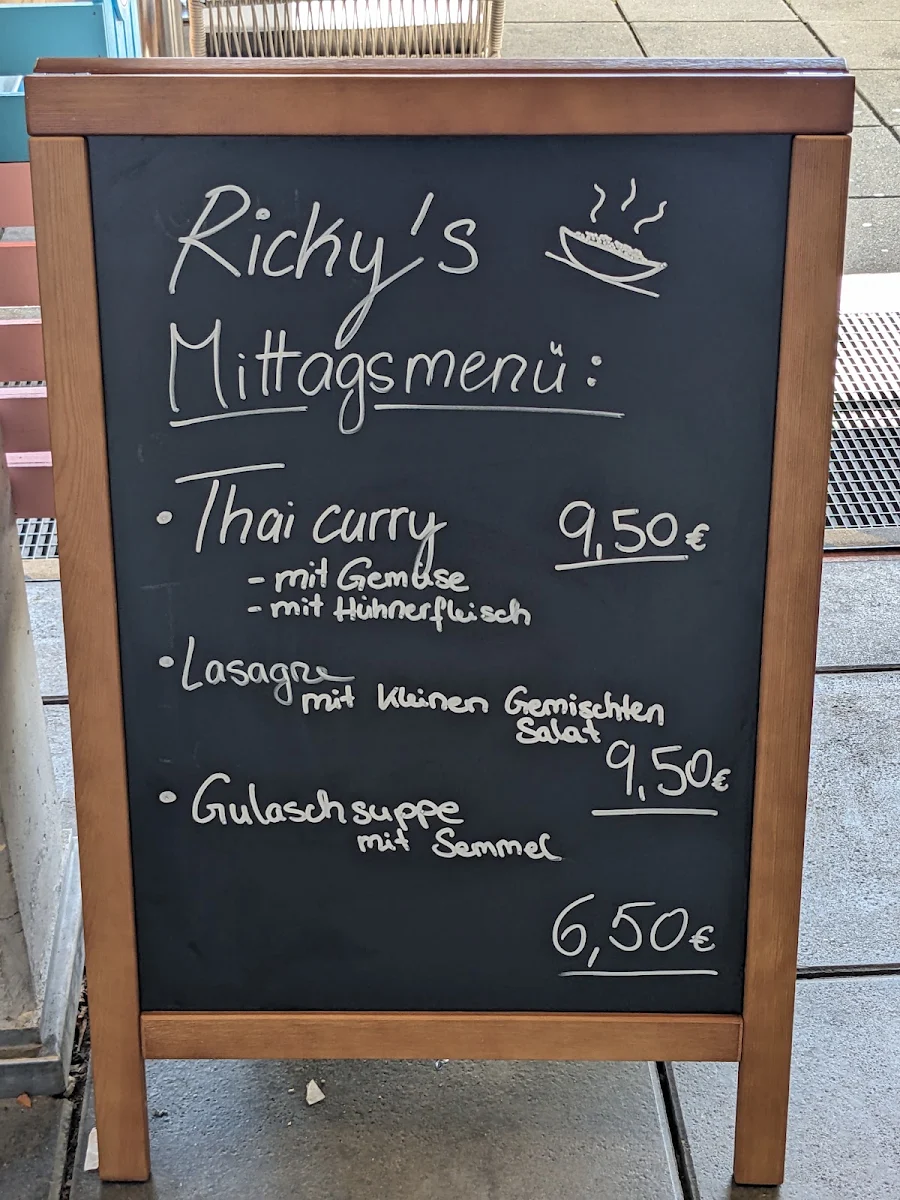 Ricky's
Mittagsmenü:
• Thai curry 9,50€
- mit Gemüse
- mit Hühnerfleisch
• Lasagne
mit kleinen Gemischten
Salat
9,50€
• Gulaschsuppe
mit Semmel
6,50€